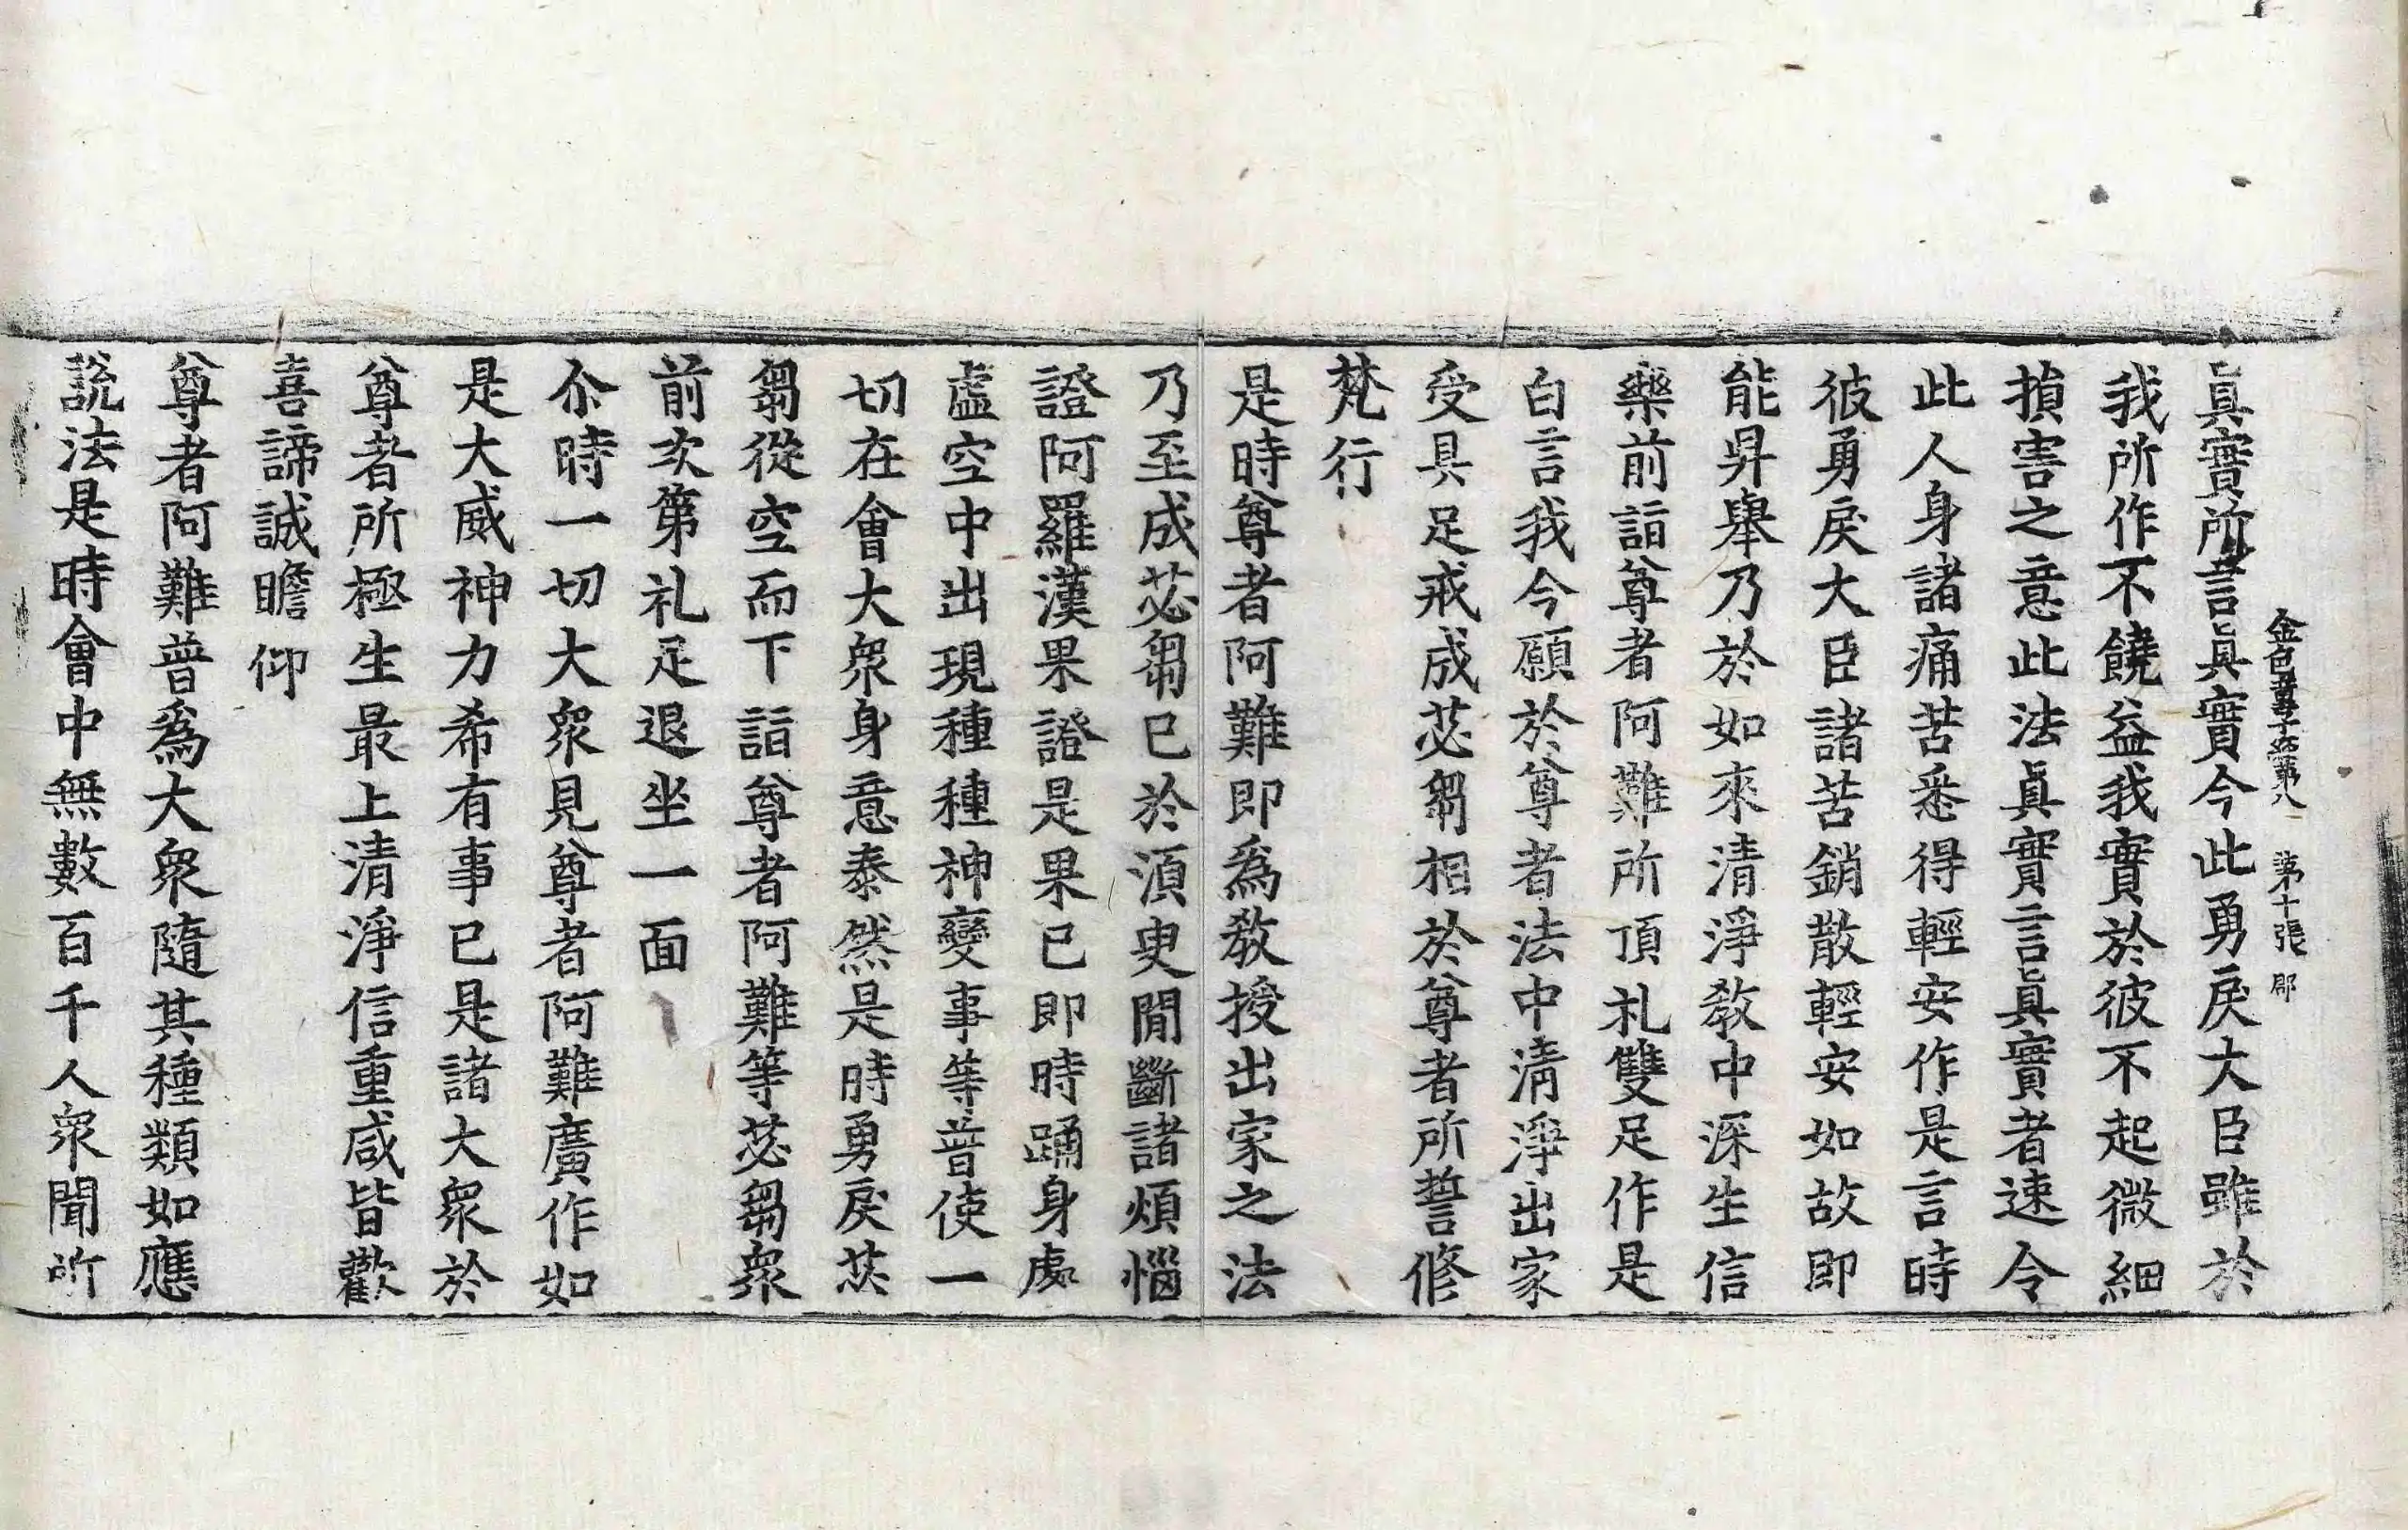 金色童子經第八 第十張 郡
眞實所言眞實今此勇戾大臣雖於
我所作不饒益我實於彼不起微細
損害之意此法眞實言眞實者速令
此人身諸痛苦悉得輕安作是言時
彼勇戾大臣諸苦銷散輕安如故即
能昇舉乃於如來清淨教中深生信
藥前詣尊者阿難所頂礼雙足作是
白言我今願於尊者法中清淨出家
受具足戒成苾芻相於尊者所誓修
梵行
是時尊者阿難即爲教授出家之法
乃至成苾芻已於湏臾閒斷諸煩惱
證阿羅漢果證是果已即時踊身處
虛空中出現種種神變事等普使一
切在會大衆身意泰然是時勇戾苾
芻從空而下詣尊者阿難等苾芻衆
前次第礼足退坐一面
尒時一切大衆見尊者阿難廣作如
是大威神力希有事已是諸大衆於
尊者所極生最上清淨信重咸皆歡
喜諦誠瞻仰
尊者阿難普爲大衆隨其種類如應
說法是時會中無數百千人衆聞所